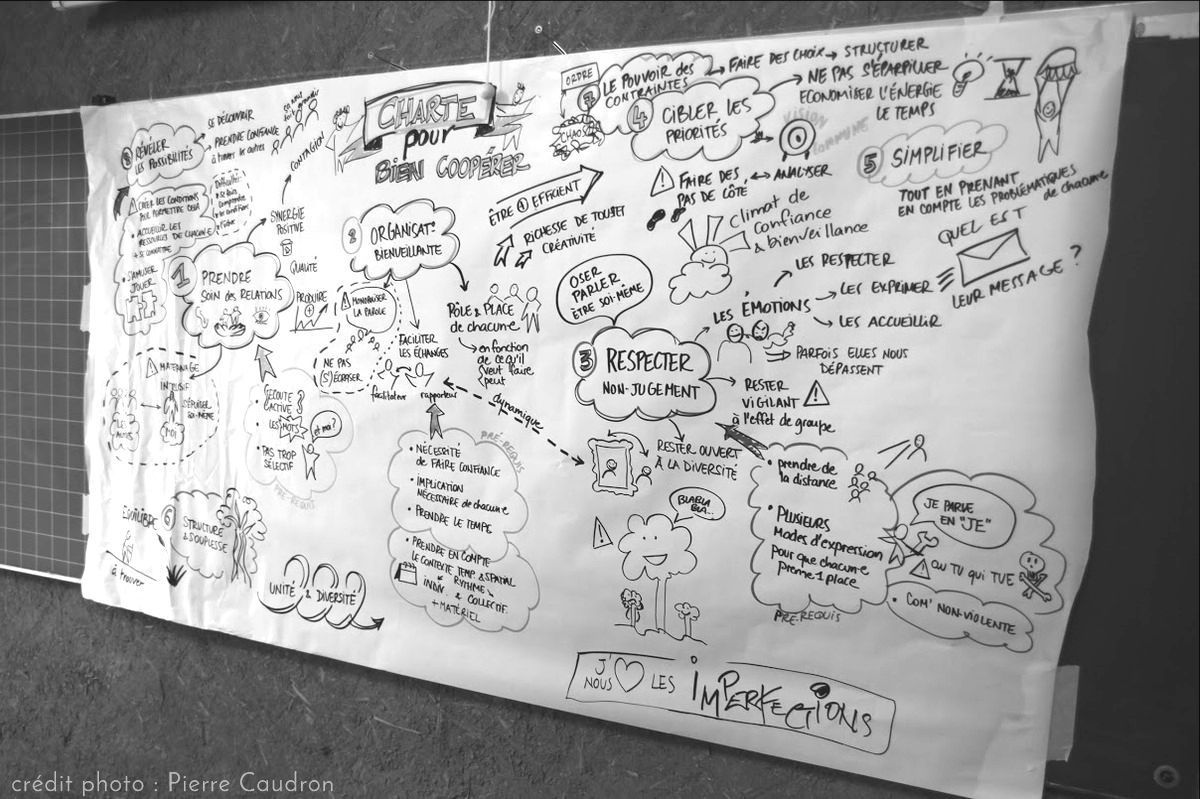 CHARTE
pour
BIEN COOPÉRER
RÉVÉLER
LES POSSIBILITÉS
SE DÉCOUVRIR
PRENDRE CONFIANCE
à travers les autres
CONTAGION
CRÉER LES CONDITIONS
POUR PERMETTRE CELA
ACCUEILLIR LES
RESSOURCES DE CHACUN·E
S'AMUSER
JOUER
1 PRENDRE
SOIN des RELATIONS
SYNERGIE
POSITIVE
QUALITÉ
PRODUIRE
MATERNAGE
INTENSIF
S'ÉPUISER
SOI-MÊME
LES
AUTRES
MOI
ÉCOUTE
ACTIVE
LES MOTS
et moi?
PAS TROP
SÉLECTIF
PRÉ-REQUIS
2 ORGANISAT°
BIENVEILLANTE
MONOPOLISER
LA PAROLE
NE PAS
(S')ÉCRASER
FACILITER
LES ÉCHANGES
facilitateur rapporteur
PÔLE & PLACE
de chacun·e
en fonction
de ce qu'il
veut faire
peut
dynamique
PRÉ-REQUIS
• NÉCESSITÉ
DE FAIRE CONFIANCE
• IMPLICATION
NÉCESSAIRE de chacun·e
• PRENDRE LE TEMPS
• PRENDRE EN COMPTE
LE CONTEXTE TEMP. & SPATIAL
RYTHME
INDIV. & COLLECTIF
+ MATÉRIEL
ÊTRE + EFFICIENT
RICHESSE DE TOUS·ET
CRÉATIVITÉ
OSER
PARLER
ÊTRE SOI-MÊME
3 RESPECTER
NON-JUGEMENT
Climat de
confiance
& bienveillance
LES ÉMOTIONS
LES RESPECTER
LES EXPRIMER
LES ACCUEILLIR
PARFOIS ELLES NOUS
DÉPASSENT
QUEL EST
LEUR MESSAGE ?
RESTER
VIGILANT
à l'effet de groupe
RESTER OUVERT
À LA DIVERSITÉ
BLABLA
BLA...
• prendre de
la distance
• PLUSIEURS
Modes d'expression
pour que chacun·e
prenne 1 place
PRÉ-REQUIS
JE PARLE
EN "JE"
OU TU QUI TUE
• COM' NON-VIOLENTE
ORDRE
CHAOS
7 LE POUVOIR des
CONTRAINTES
FAIRE DES CHOIX → STRUCTURER
4 CIBLER LES
PRIORITÉS
NE PAS S'ÉPARPILLER
ECONOMISER L'ÉNERGIE
LE TEMPS
VISION
COMMUNE
FAIRE DES ↔ ANALYSER
PAS DE CÔTÉ
5 SIMPLIFIER
TOUT EN PRENANT
EN COMPTE LES PROBLÉMATIQUES
de chacun·e
EQUILIBRE
à trouver
6 STRUCTURE
& SOUPLESSE
UNITÉ & DIVERSITÉ
J'
NOUS ♡ LES IMPERFECTIONS
crédit photo : Pierre Caudron